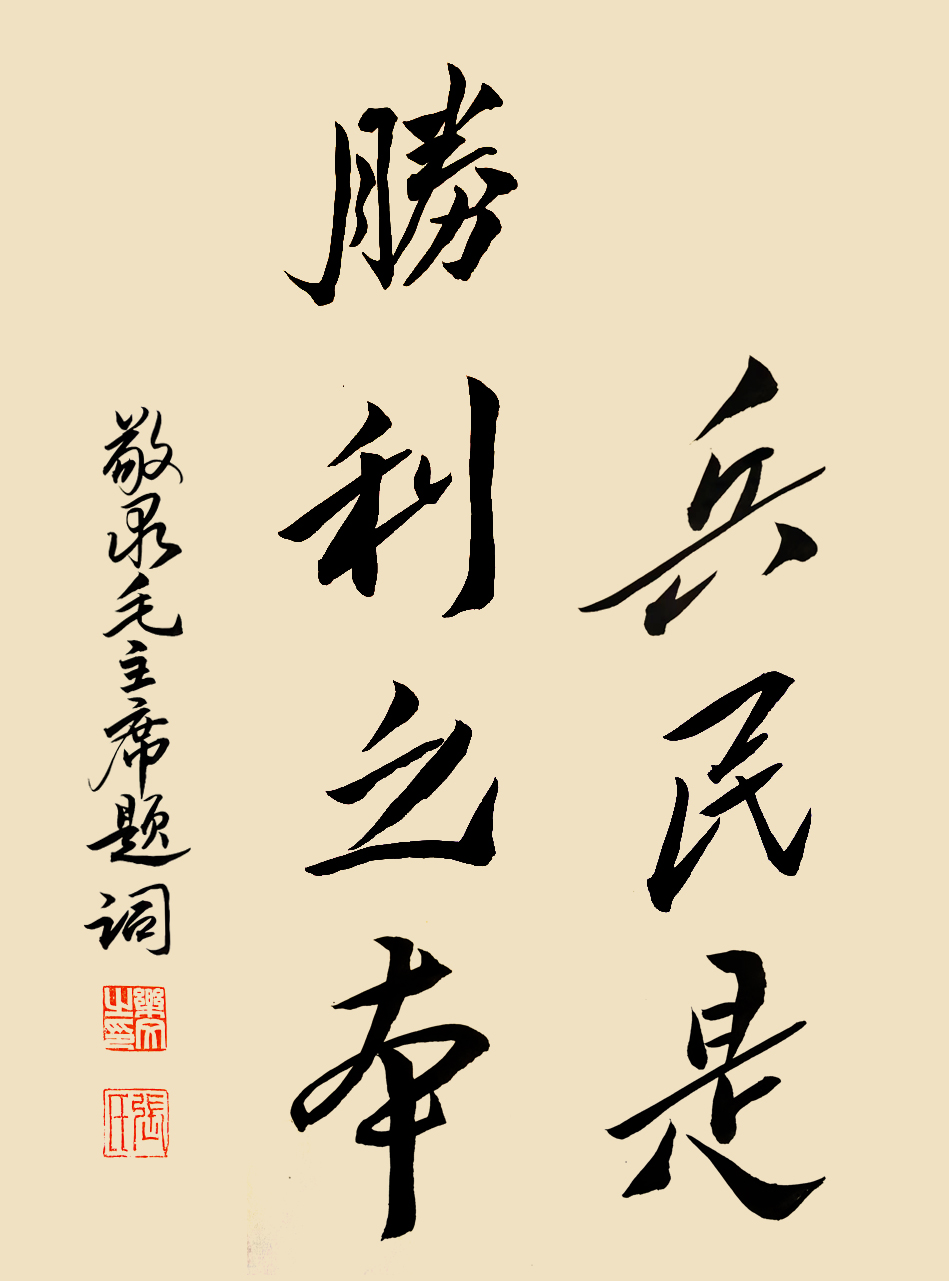 兵民是
勝利之本
敬录毛主席题词
張氏